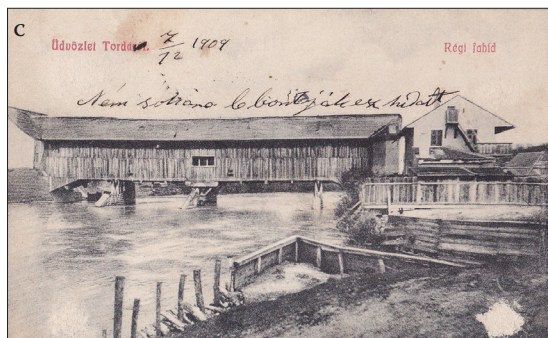 C
Üdvözlet Tordáról. 7/12 1909
Régi fahíd
Nem sokára lebontják ezt hidatt